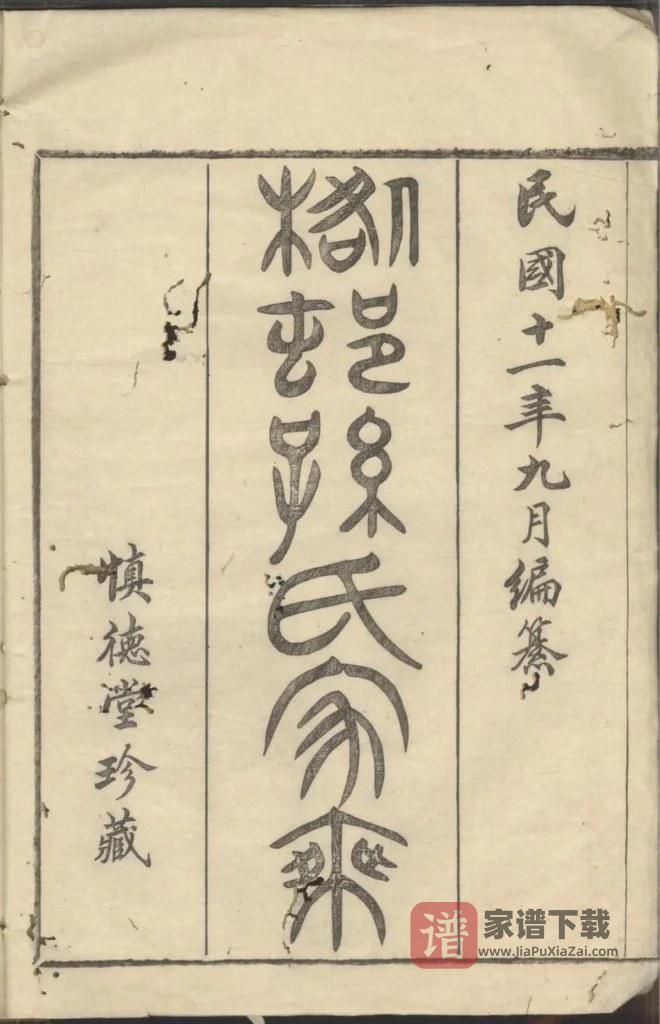 民國十一年九月編纂
邨孫氏家乘
慎德堂珍藏
谱 家谱下载
www.JiaPuXiaZai.com